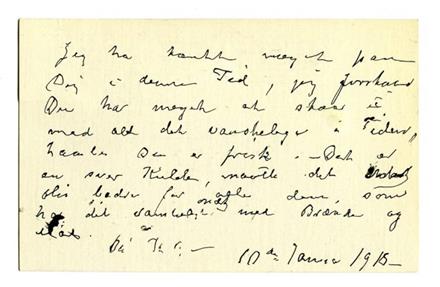 Jeg har tænkt meget paa
Dig i denne Tid, jeg forstaar
Du har meget at staar i
med alt det vanskelige i Tiden,
haaber Du er frisk. - Det er
en svær Kulde, maatte det
blive bedre for alle dem, som
har det vanskeligt med Brænde og
10de Januar 1918-